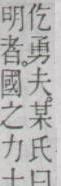 仡勇夫某氏曰
明者。國之力士